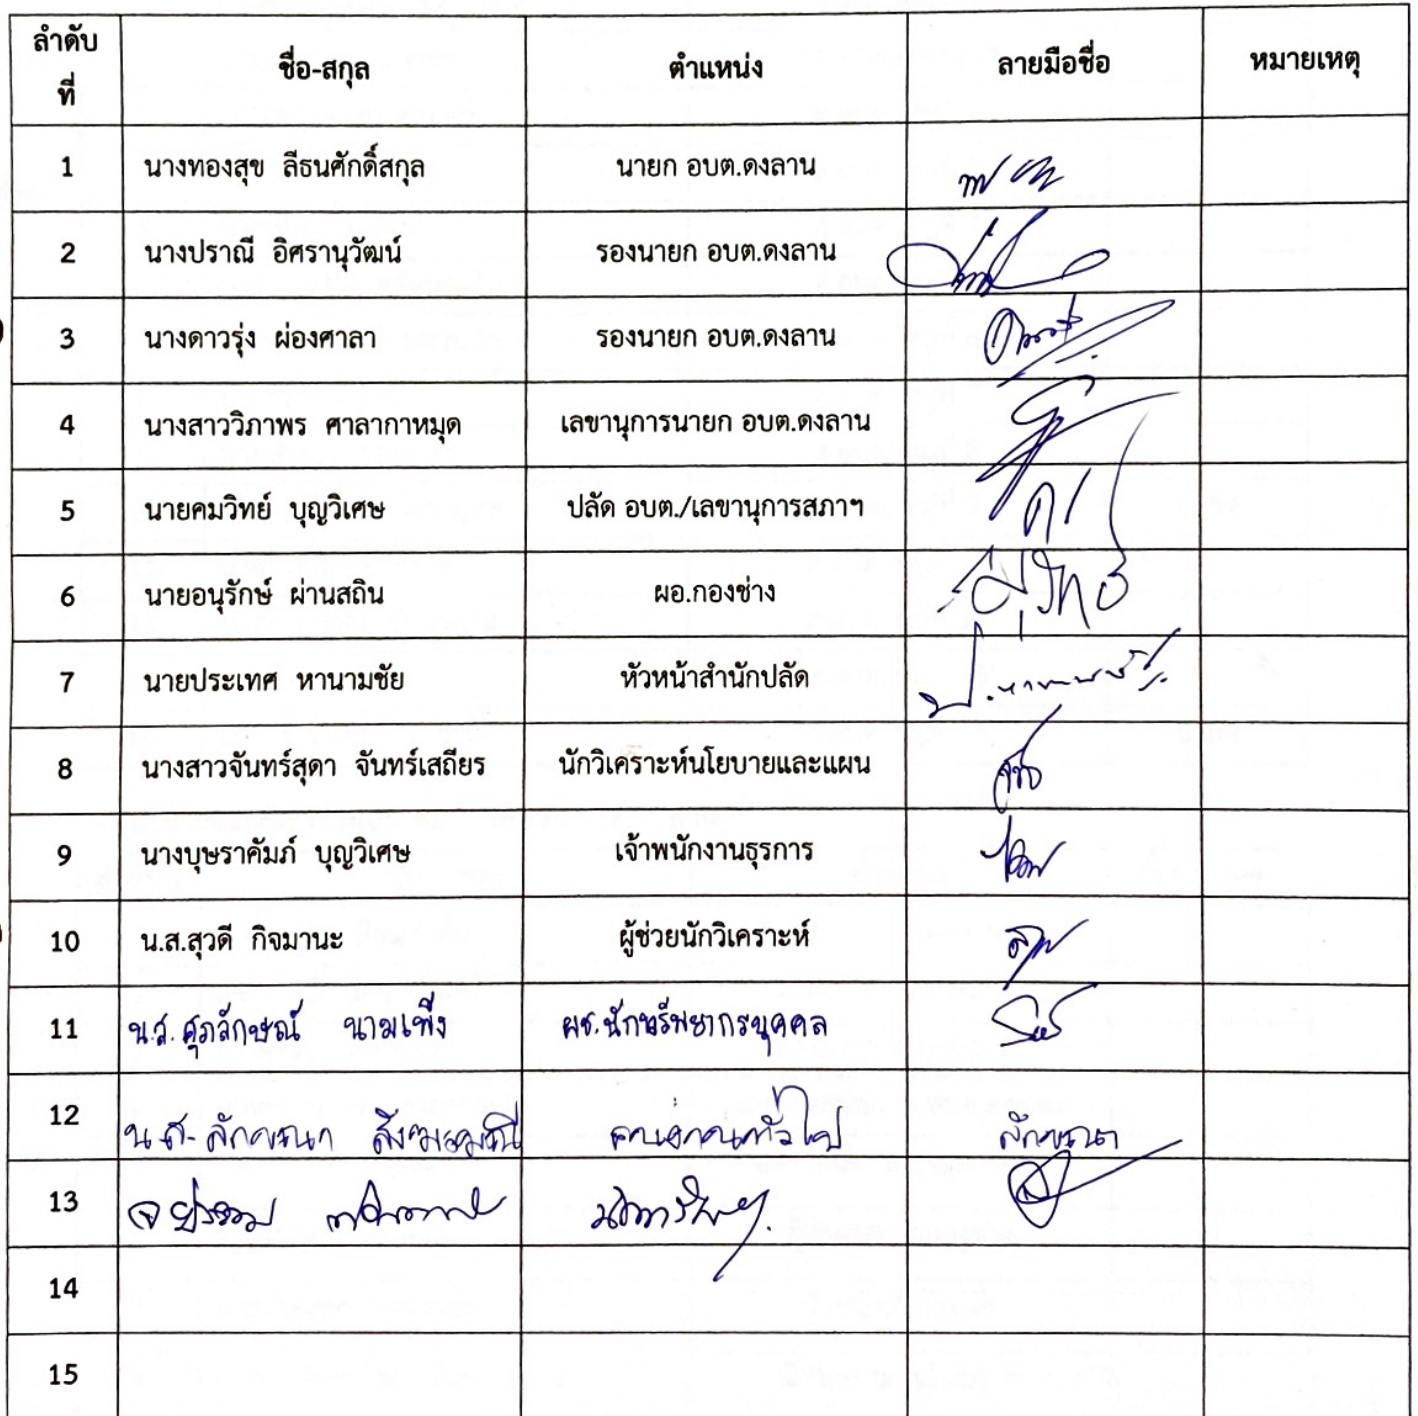 ลำดับที่ ชื่อ-สกุล ตำแหน่ง ลายมือชื่อ หมายเหตุ
1 นางทองสุข ลีธนศักดิ์สกุล นายก อบต.ดงลาน
2 นางปราณี อิศรานุวัฒน์ รองนายก อบต.ดงลาน
3 นางดาวรุ่ง ผ่องศาลา รองนายก อบต.ดงลาน
4 นางสาววิภาพร ศาลากาหมุด เลขานุการนายก อบต.ดงลาน
5 นายคมวิทย์ บุญวิเศษ ปลัด อบต./เลขานุการสภาฯ
6 นายอนุรักษ์ ผ่านสถิน ผอ.กองช่าง
7 นายประเทศ หานามชัย หัวหน้าสำนักปลัด
8 นางสาวจันทร์สุดา จันทร์เสถียร นักวิเคราะห์นโยบายและแผน
9 นางบุษราคัมภ์ บุญวิเศษ เจ้าพนักงานธุรการ
10 น.ส.สุวดี กิจมานะ ผู้ช่วยนักวิเคราะห์
11 น.ส.ศุภลักษณ์ นามเพ็ง ผช.นักทรัพยากรบุคคล
12 น.ส.ลักขณา คนงานทั่วไป ลักขณา
13
14
15